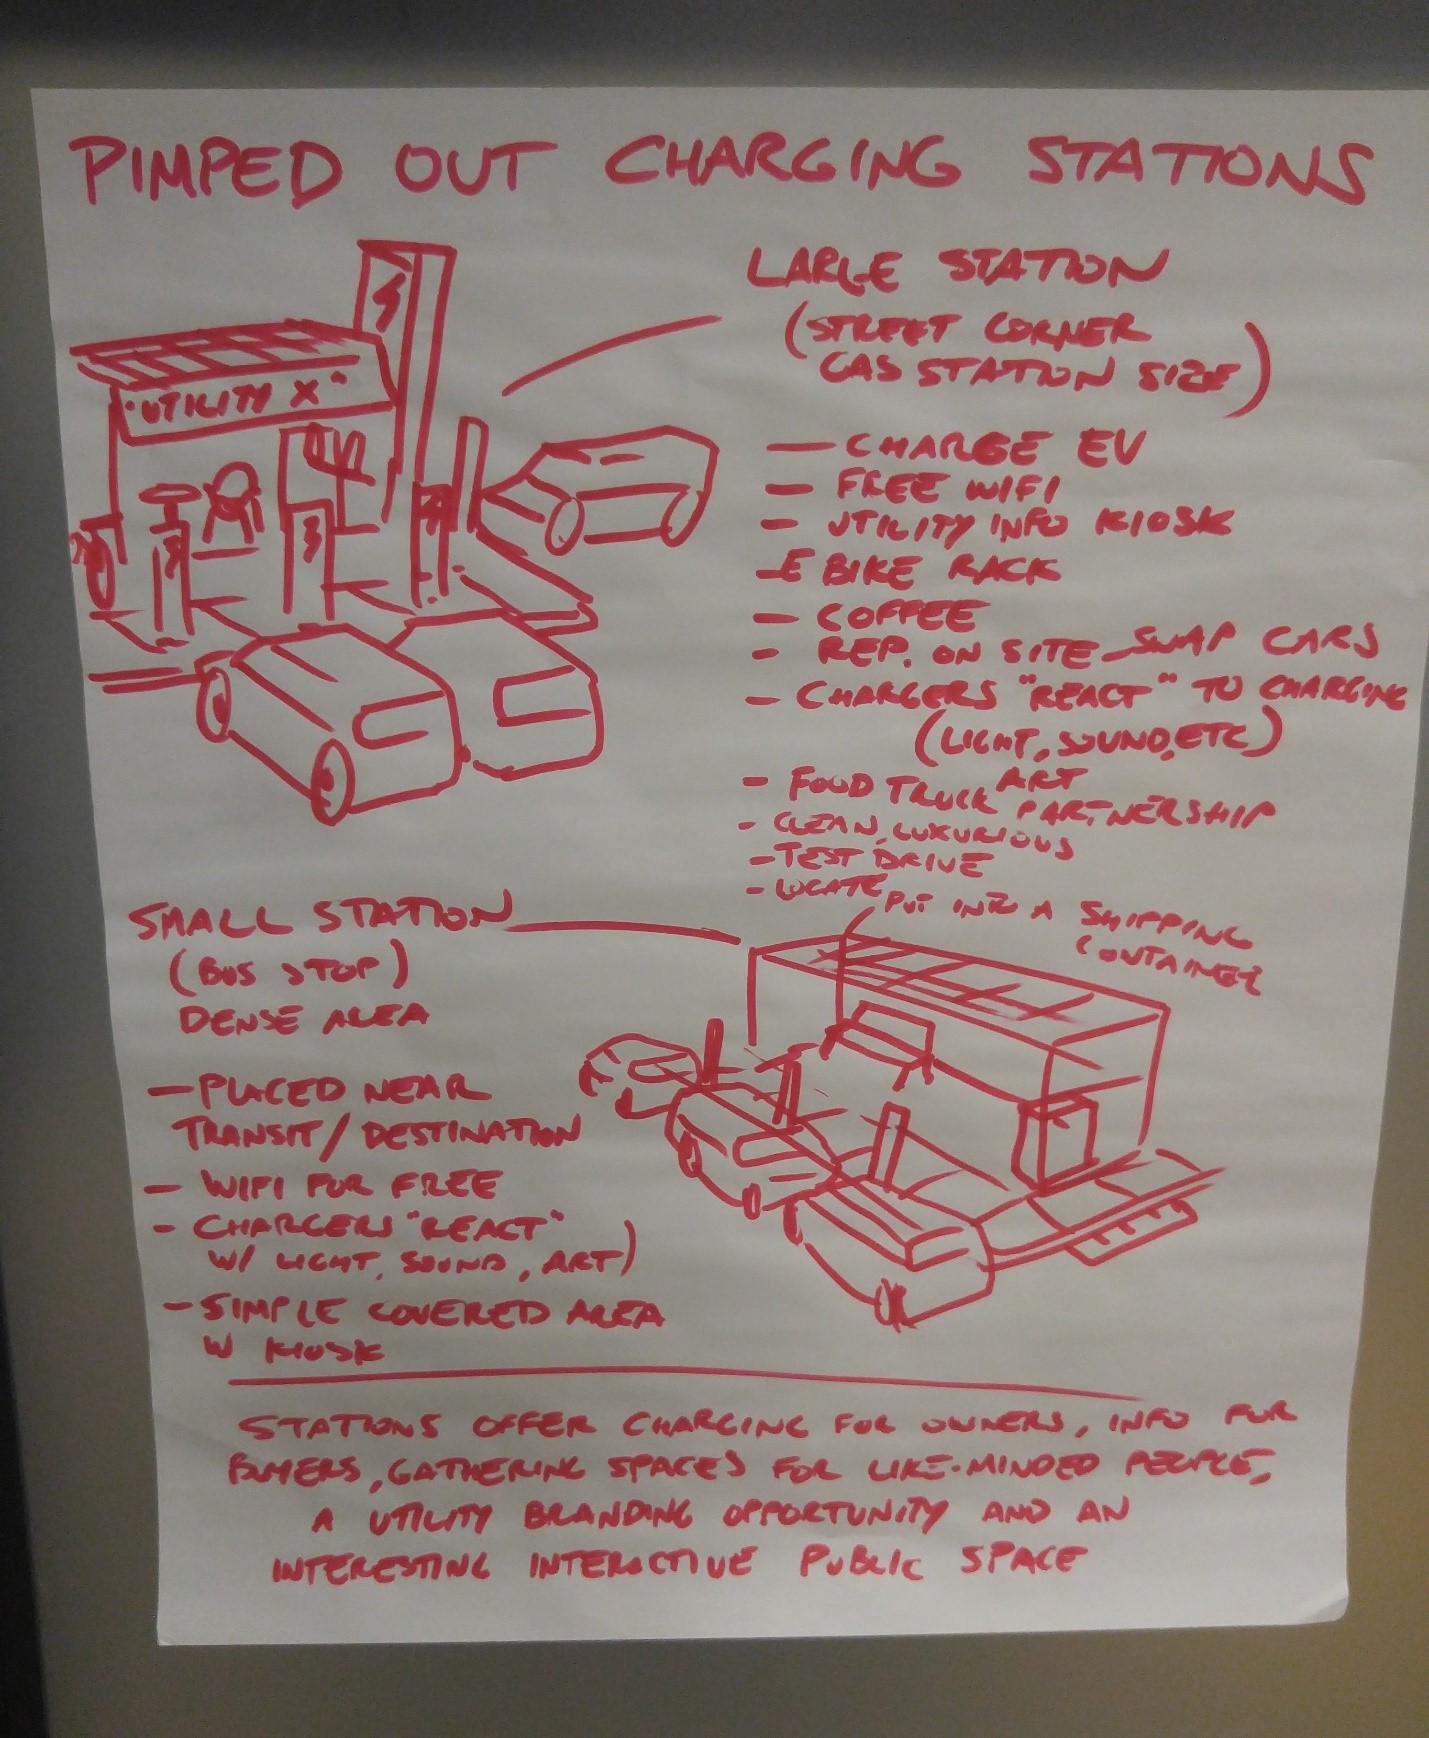 PIMPED OUT CHARGING STATIONS
"UTILITY X"
LARGE STATION
(STREET CORNER
GAS STATION SIZE)
— CHARGE EV
— FREE WIFI
- UTILITY INFO KIOSK
- E BIKE RACK
— COFFEE
- REP. ON SITE - SWAP CARS
- CHARGERS "REACT" TO CHARGING
(LIGHT, SOUND, ETC)
ART
- FOOD TRUCK PARTNERSHIP
- CLEAN, LUXURIOUS
- TEST DRIVE
- LOCATE
PUT INTO A SHIPPING
CONTAINER
SMALL STATION
(BUS STOP)
DENSE AREA
— PLACED NEAR
TRANSIT / DESTINATION
- WIFI FOR FREE
- CHARGERS "REACT"
W/ LIGHT, SOUND, ART)
- SIMPLE COVERED AREA
W KIOSK
STATIONS OFFER CHARGING FOR OWNERS, INFO FOR
BUYERS, GATHERING SPACES FOR LIKE-MINDED PEOPLE,
A UTILITY BRANDING OPPORTUNITY AND AN
INTERESTING INTERACTIVE PUBLIC SPACE